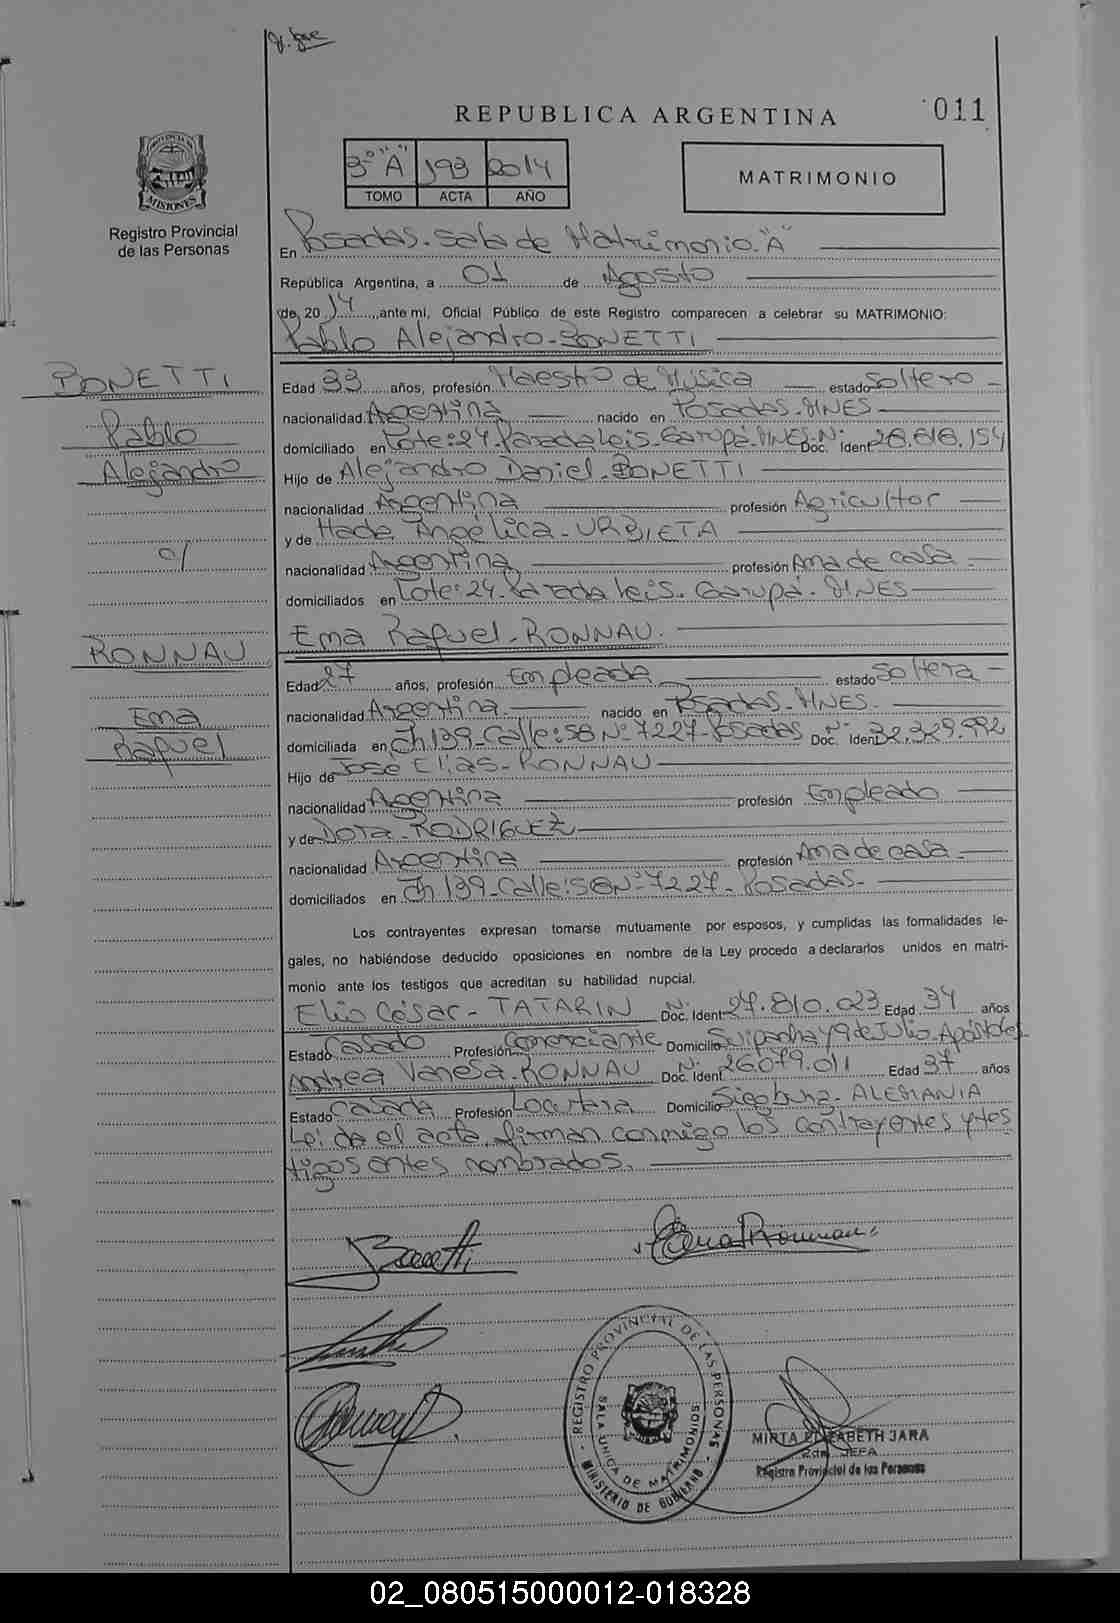 011
REPUBLICA ARGENTINA
3º "A" 193 2014
TOMO ACTA AÑO
MATRIMONIO
PROVINCIA DE
MISIONES
Registro Provincial
de las Personas
En Posadas. Sala de Matrimonio. "A"
República Argentina, a 01 de Agosto
de 2014, ante mi, Oficial Público de este Registro comparecen a celebrar su MATRIMONIO:
Pablo Alejandro - BONETTI
BONETTI
Pablo
Alejandro
c/
RONNAU
Ema
Raquel
Edad 33 años, profesión Maestro de Música estado Soltero
nacionalidad Argentina nacido en Posadas. MNES
domiciliado en Lote: 24. Parada Leis. Garupá. MNES Nº Doc. Ident. 28.616.154
Hijo de Alejandro Daniel. BONETTI
nacionalidad Argentina profesión Agricultor
y de Angélica - URBIETA
nacionalidad Argentina profesión Ama de casa
domiciliados en Lote: 24. Parada Leis. Garupá. MNES
Ema Raquel - RONNAU.
Edad 27 años, profesión Empleada estado Soltera
nacionalidad Argentina nacido en Posadas. MNES.
domiciliada en Ch 139 - Calle: 56 Nº 7227 - Posadas Nº Doc. Ident. 32.329.992
Hijo de José Elías - RONNAU
nacionalidad Argentina profesión Empleado
y de RODRIGUEZ
nacionalidad Argentina profesión Ama de casa
domiciliados en Ch 139 - Calle: 56 Nº 7227 - Posadas.
Los contrayentes expresan tomarse mutuamente por esposos, y cumplidas las formalidades le-
gales, no habiéndose deducido oposiciones en nombre de la Ley procedo a declararlos unidos en matri-
monio ante los testigos que acreditan su habilidad nupcial.
Elio César - TATARIN Nº Doc. Ident. 27.810.023 Edad 34 años
Estado Casado Profesión Comerciante Domicilio Suipacha y 9 de Julio. Apóstoles
Andrea Vanesa - RONNAU Nº Doc. Ident. 26.079.011 Edad 37 años
Estado Casada Profesión Locutora Domicilio Siegburg - ALEMANIA
Leída el acta, firman conmigo los contrayentes y tes
tigos antes nombrados.
Bonetti
Ema Ronnau
REGISTRO PROVINCIAL DE LAS PERSONAS
SALA UNICA DE MATRIMONIOS
MINISTERIO DE GOBIERNO
MIRTA ELIZABETH JARA
JEFA
Registro Provincial de las Personas
02_080515000012-018328